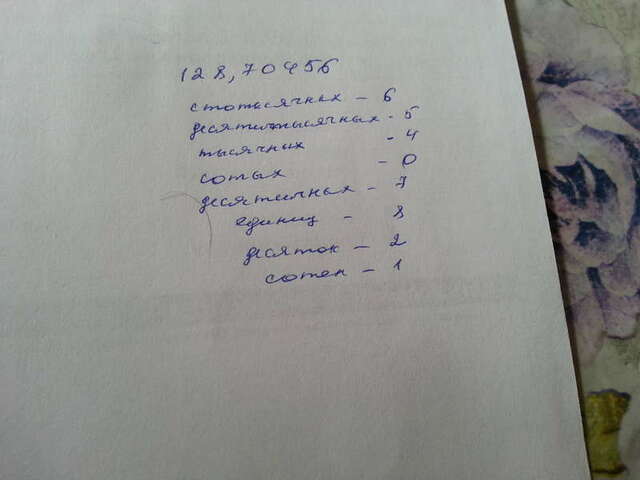 128,70456
стотысячных - 6
десятитысячных - 5
тысячных - 4
сотых - 0
десятичных - 7
единиц - 8
десяток - 2
сотен - 1